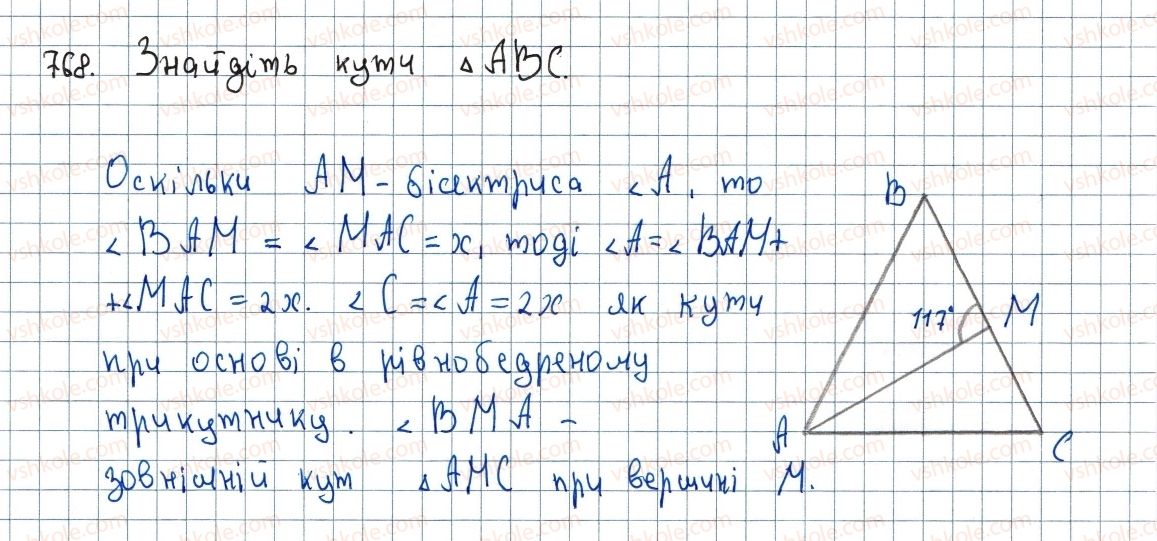 768. Знайдіть кути △ ABC.
Оскільки AM - бісектриса ∠A, то
∠BAM = ∠MAC = x, тоді ∠A = ∠BAM +
+∠MAC = 2x. ∠C = ∠A = 2x як кути
при основі в рівнобедреному
трикутнику. ∠BMA -
зовнішній кут △AMC при вершині M.
B
117°
M
A
C